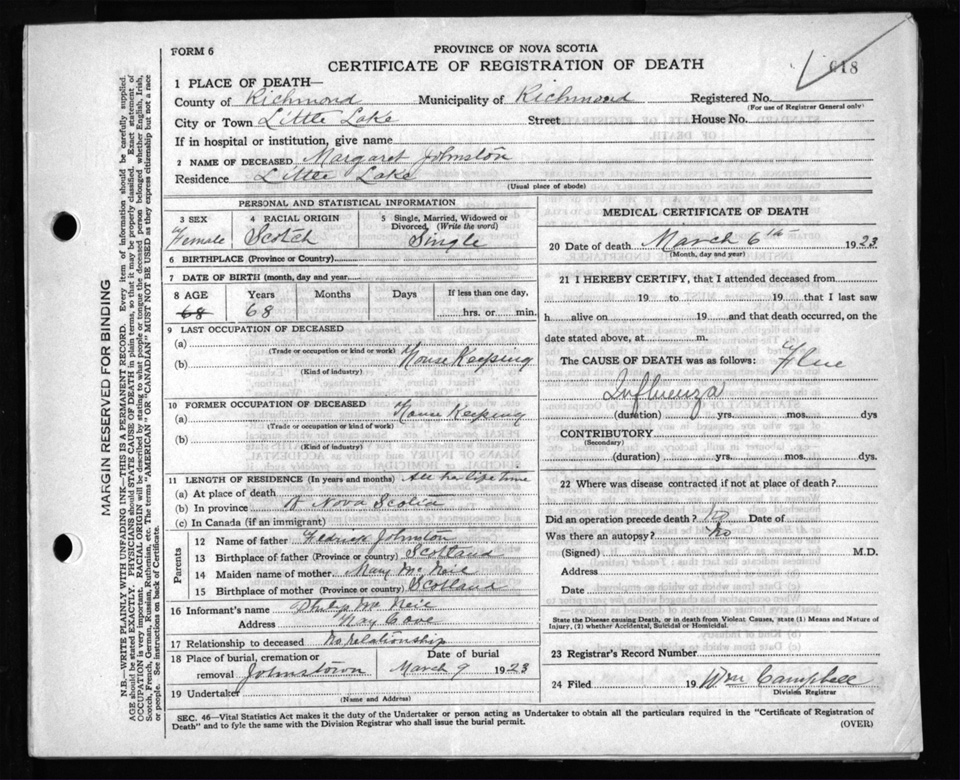 FORM 6
PROVINCE OF NOVA SCOTIA
CERTIFICATE OF REGISTRATION OF DEATH
618
1 PLACE OF DEATH—
County of Richmond Municipality of Richmond Registered No.
(For use of Registrar General only)
City or Town Little Lake Street House No.
If in hospital or institution, give name
2 NAME OF DECEASED Margaret Johnston
Residence Little Lake
(Usual place of abode)
PERSONAL AND STATISTICAL INFORMATION
3 SEX 4 RACIAL ORIGIN 5 Single, Married, Widowed or Divorced, (Write the word)
Female Scotch Single
6 BIRTHPLACE (Province or Country)
7 DATE OF BIRTH (month, day and year
8 AGE Years Months Days If less than one day,
68 68 hrs. or min.
9 LAST OCCUPATION OF DECEASED
(a)
(Trade or occupation or kind or work)
(b) House Keeping
(Kind of industry)
10 FORMER OCCUPATION OF DECEASED
(a) House Keeping
(Trade or occupation or kind of work)
(b)
(Kind of industry)
11 LENGTH OF RESIDENCE (In years and months) All her life time
(a) At place of death
(b) In province Nova Scotia
(c) In Canada (if an immigrant)
Parents
12 Name of father Johnston
13 Birthplace of father (Province or country) Scotland
14 Maiden name of mother Mary Mc Neil
15 Birthplace of mother (Province or country) Scotland
16 Informant's name Mc Neil
Address Cove
17 Relationship to deceased No relationship
18 Place of burial, cremation or removal Johnstown Date of burial March 9 1923
19 Undertaker
(Name and Address)
MEDICAL CERTIFICATE OF DEATH
20 Date of death March 6th 1923
(Month, day and year)
21 I HEREBY CERTIFY, that I attended deceased from
19 to 19 that I last saw
h alive on 19 and that death occurred, on
date stated above, at m.
The CAUSE OF DEATH was as follows: Flue
Influenza
(duration) yrs. mos. dys
CONTRIBUTORY
(Secondary)
(duration) yrs. mos. dys.
22 Where was disease contracted if not at place of death?
Did an operation precede death? no Date of
Was there an autopsy? No
(Signed) M.D.
Address
Date
State the Disease causing Death, or in death from Violent Causes, state (1) Means and Nature of
Injury, (2) whether Accidental, Suicidal or Homicidal.
23 Registrar's Record Number
24 Filed 19 Wm Campbell
Division Registrar
SEC. 46—Vital Statistics Act makes it the duty of the Undertaker or person acting as Undertaker to obtain all the particulars required in the "Certificate of Registration of
Death" and to fyle the same with the Division Registrar who shall issue the burial permit.
(OVER)
MARGIN RESERVED FOR BINDING
N.B.—WRITE PLAINLY WITH UNFADING INK—THIS IS A PERMANENT RECORD. Every item of information should be carefully supplied.
AGE should be stated EXACTLY. PHYSICIANS should STATE CAUSE OF DEATH in plain terms, so that it may be properly classified. Exact statement of
OCCUPATION is very important. RACIAL ORIGIN will be described by stating to what people or tongue the deceased person belonged whether English, Irish,
Scotch, French, German, Russian, Ruthenian, etc. The terms "AMERICAN" OR "CANADIAN" MUST NOT BE USED as they express citizenship but not a race
or people. See instructions on back of Certificate.